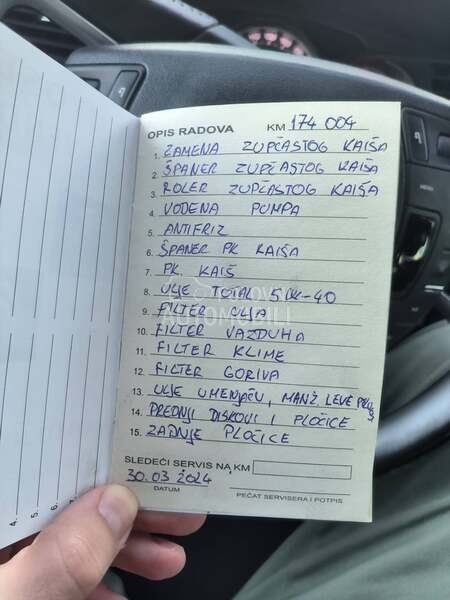 OPIS RADOVA KM 174 004
1. ZAMENA ZUPČASTOG KAIŠA
2. ŠPANER ZUPČASTOG KAIŠA
3. ROLER ZUPČASTOG KAIŠA
4. VODENA PUMPA
5. ANTIFRIZ
6. ŠPANER PK KAIŠA
7. PK. KAIŠ
8. ULJE TOTAL 5W-40
9. FILTER ULJA
10. FILTER VAZDUHA
11. FILTER KLIME
12. FILTER GORIVA
13. ULJE U MENJAČU, MANŽ. LEVE
14. PREDNJI DISKOVI I PLOČICE
15. ZADNJE PLOČICE
SLEDEĆI SERVIS NA KM
30.03.2024
DATUM PEČAT SERVISERA I POTPIS
4.
5.
6.
7.
MENU